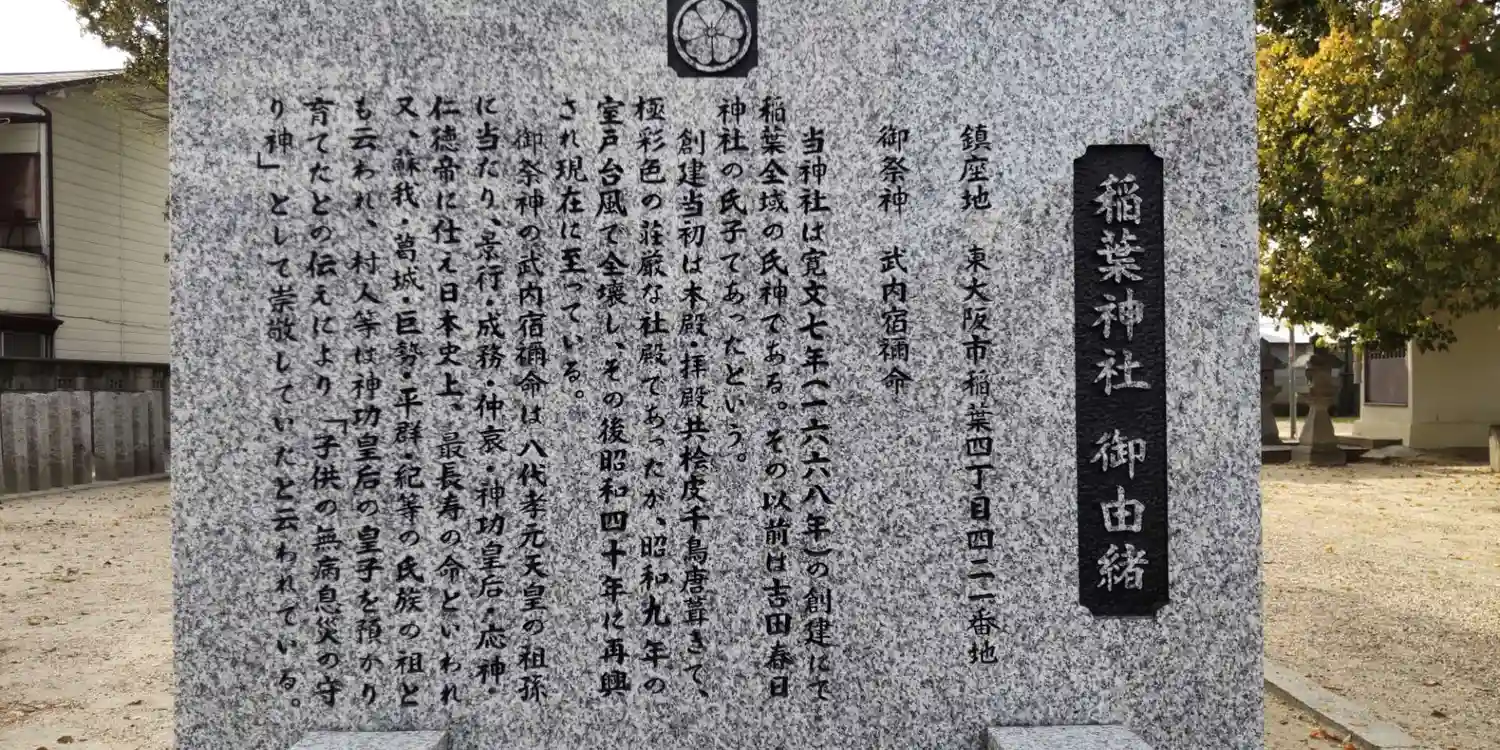 稲葉神社 御由緒
鎮座地 東大阪市稲葉四丁目四二一番地
御祭神 武内宿禰命
当神社は寛文七年(一六六八年)の創建にて
稲葉全域の氏神である。その以前は吉田春日
神社の氏子であったという。
創建当初は本殿・拝殿共桧皮千鳥唐葺きで、
極彩色の荘厳な社殿であったが、昭和九年の
室戸台風で全壊し、その後昭和四十年に再興
され現在に至っている。
御祭神の武内宿禰命は八代孝元天皇の祖孫
に当たり、景行・成務・仲哀・神功皇后・応神・
仁徳帝に仕え日本史上、最長寿の命といわれ
又、蘇我・葛城・巨勢・平群・紀等の氏族の祖と
も云われ、村人等は神功皇后の皇子を預かり
育てたとの伝えにより「子供の無病息災の守
り神」として崇敬していたと云われている。